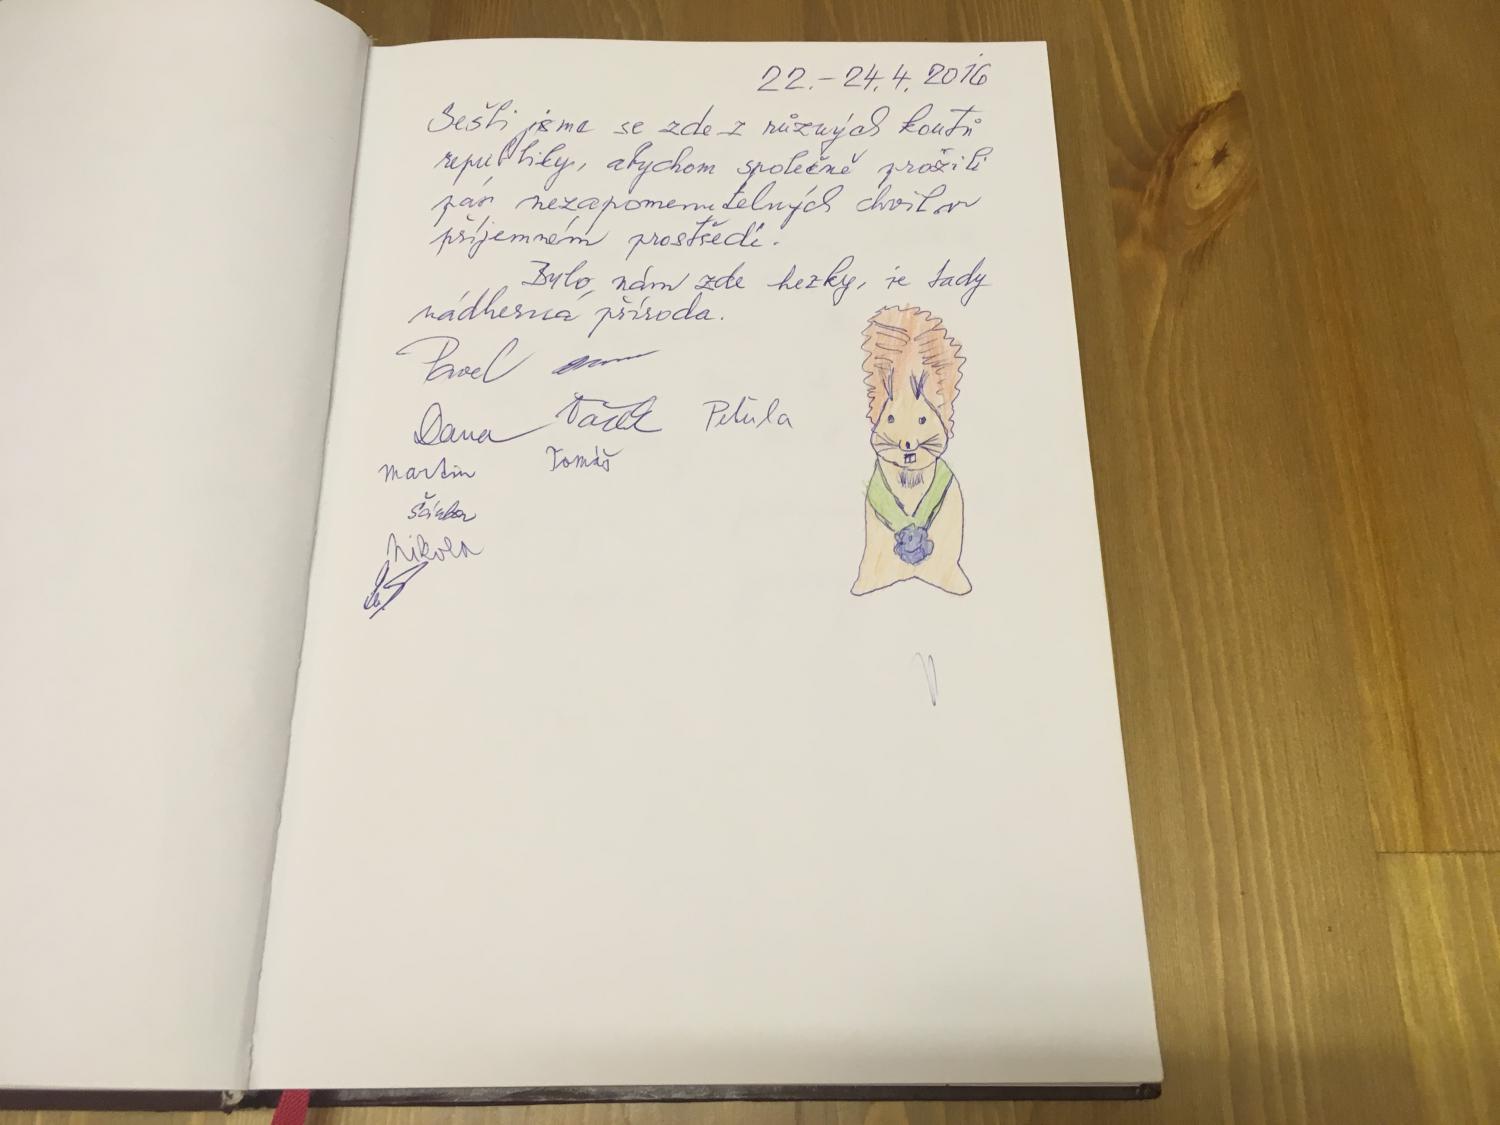 22.-24.4.2016
Sešli jsme se zde z různých koutů
republiky, abychom společně prožili
pár nezapomenutelných chvil v
příjemném prostředí.
Bylo nám zde hezky, je tady
nádherná příroda.
Pavel
Dana Vašek Petula
Martin Tomáš
Šárka
Nikola